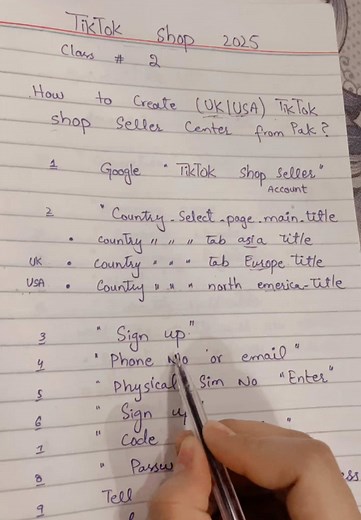 TikTok Shop 2025
Class # 2
How to Create (UK/USA) TikTok
shop Seller Center from Pak?
1 Google "TikTok shop seller"
Account
2 "Country_Select_page_main_title
• country " " " tab asia title
UK • country " " " tab Europe title
USA • Country " " " north emerica-title
3 "Sign up"
4 "Phone No or email"
5 "Physical Sim No "Enter"
6 "Sign up"
7 "Code
8 "Passw ess
9 Tell